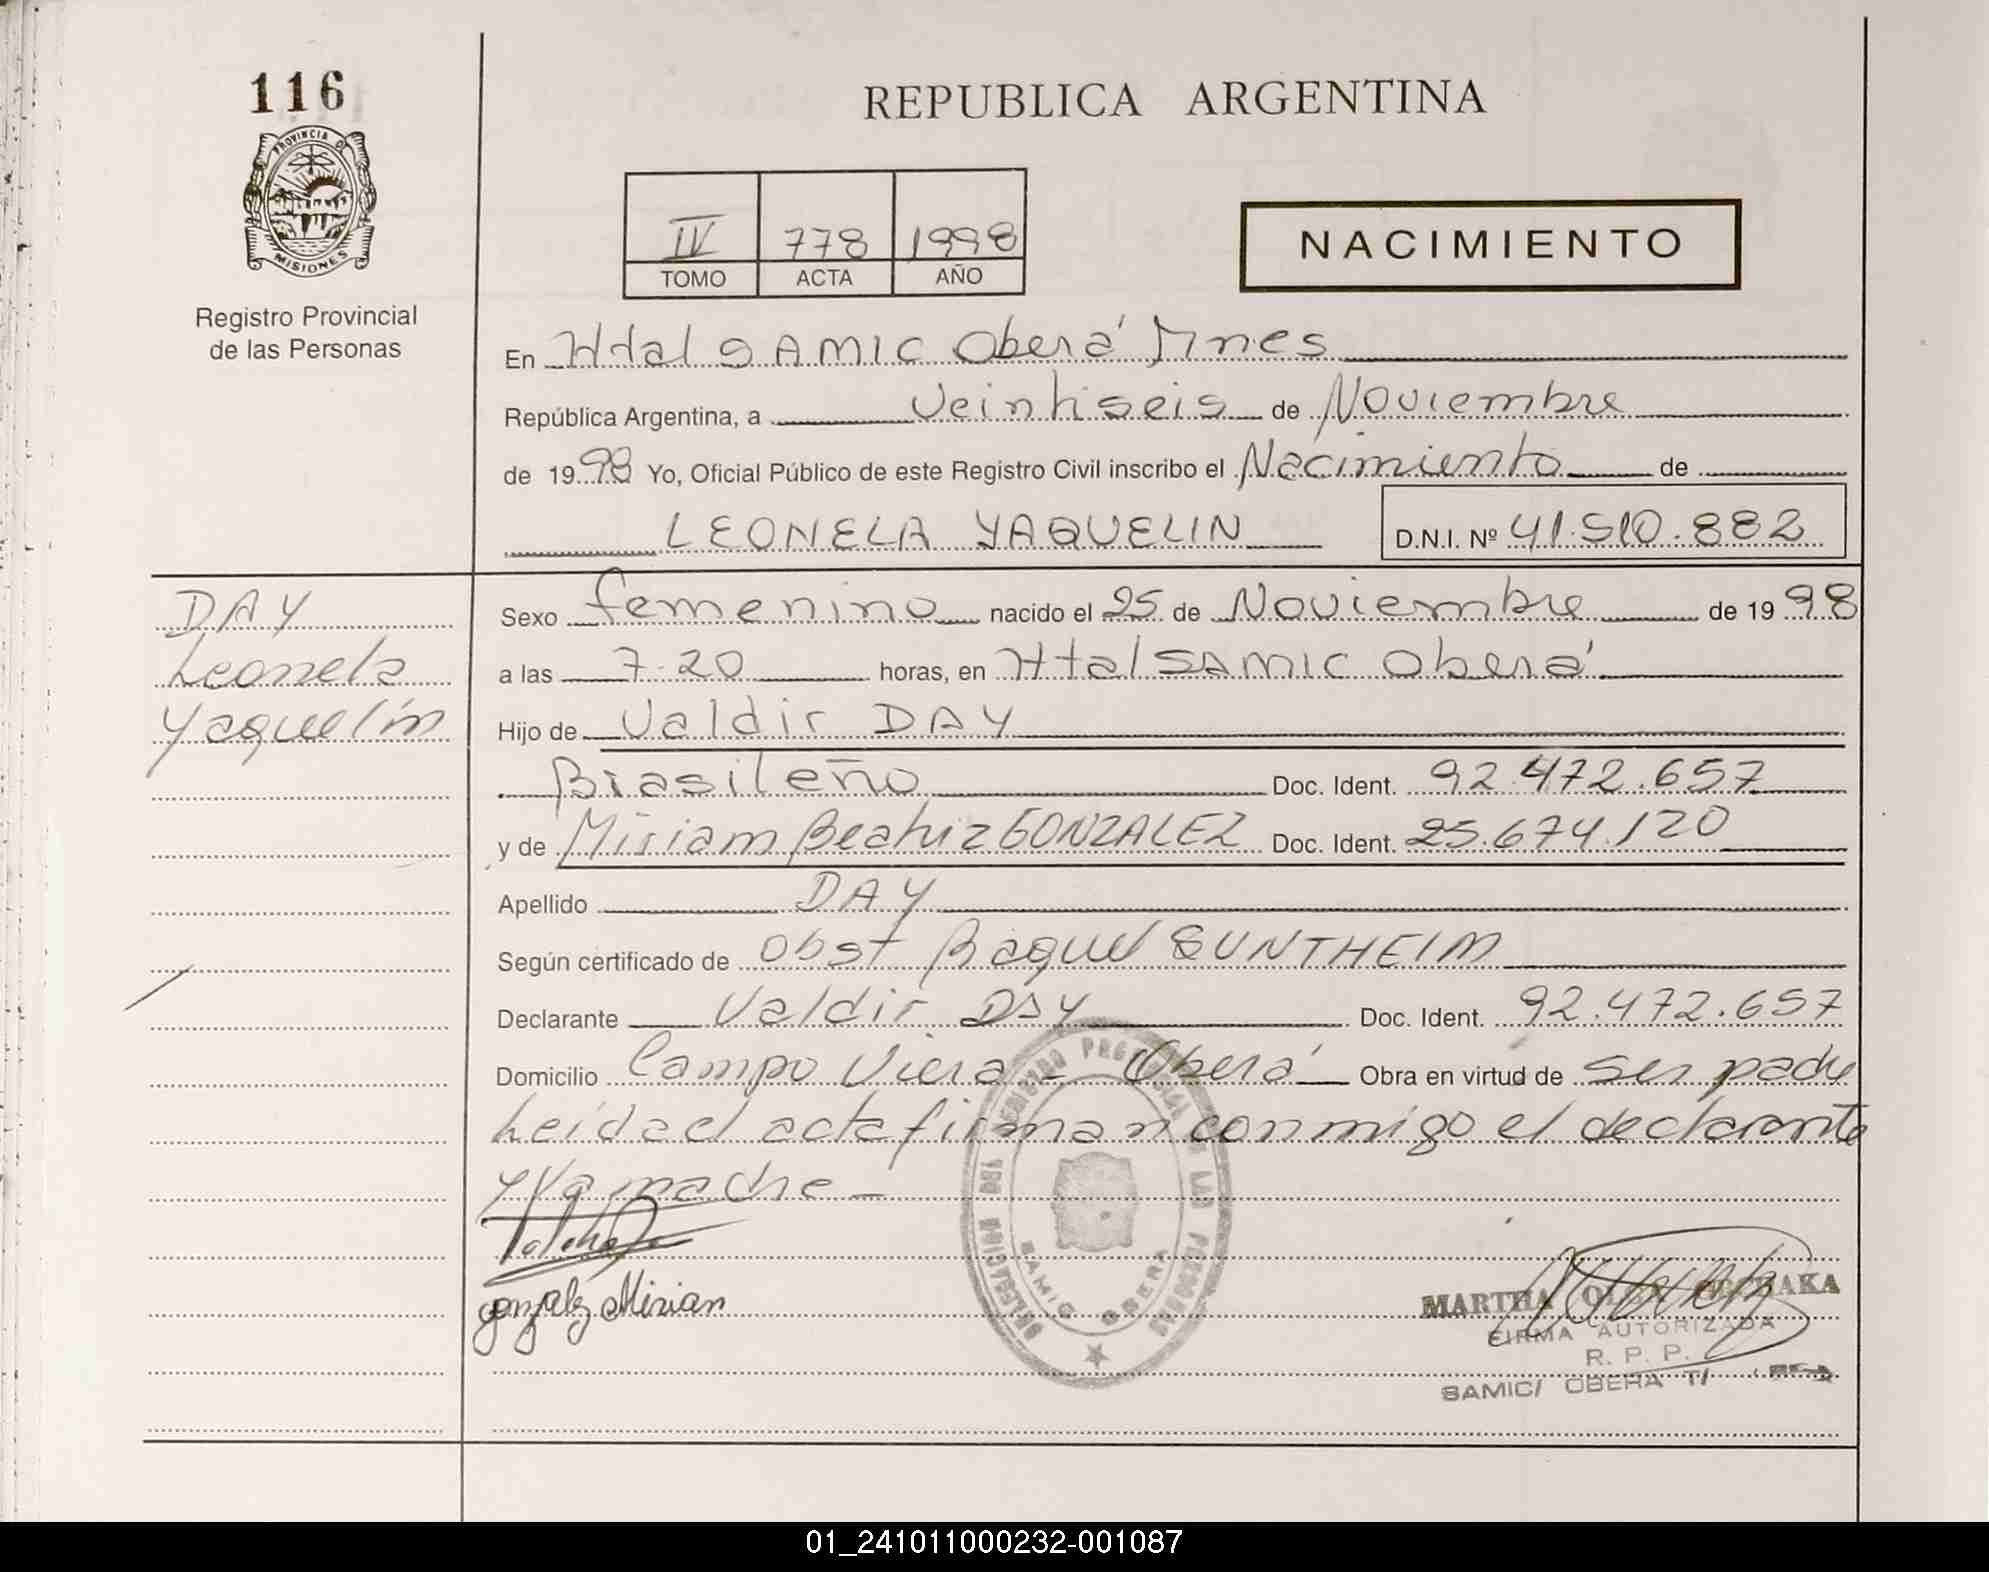 116
PROVINCIA DE
MISIONES
Registro Provincial
de las Personas
REPUBLICA ARGENTINA
IV 778 1998
TOMO ACTA AÑO
NACIMIENTO
En Htal SAMIC Oberá Mnes
República Argentina, a Veintiseis de Noviembre
de 1998 Yo, Oficial Público de este Registro Civil inscribo el Nacimiento de
LEONELA YAQUELIN D.N.I. Nº 41.510.882
DAY
Leonela
Yaquelin
Sexo femenino nacido el 25 de Noviembre de 1998
a las 7.20 horas, en Htal SAMIC Oberá
Hijo de Valdir DAY
Brasileño Doc. Ident. 92.472.657
y de Miriam Beatriz GONZALEZ Doc. Ident. 25.674.120
Apellido DAY
Según certificado de Obst Raquel GUNTHEIM
Declarante Valdir DAY Doc. Ident. 92.472.657
Domicilio Campo Viera - Oberá Obra en virtud de ser padre
Leída el acta firman conmigo el declarante
y la madre -
Gonzalez Mirian
DELEGACION DEL REGISTRO PROVINCIAL DE LAS PERSONAS
SAMIC OBERA
MARTHA
FIRMA AUTORIZADA
R. P. P.
SAMIC/ OBERA
01_241011000232-001087